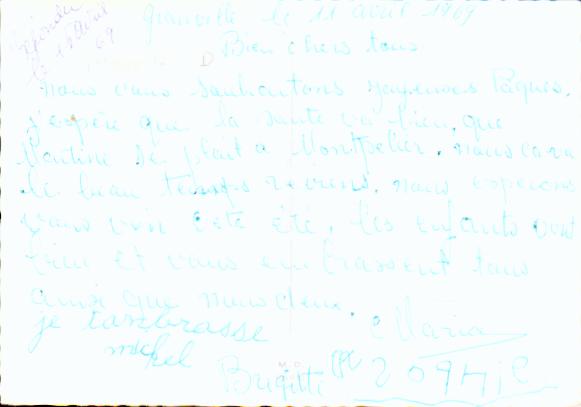 Granville le 11 avril 1969
Répondu
le 15 avril
69
Bien chers tous
nous vous souhaitons joyeuses Pâques.
j'espère que la santé va bien, que
se plait a Montpelier. nous ca va
le beau temps reviens. nous esperons
vous voir cete été, les enfants vont
bien et vous embrassent tous
ainsi que nous deux.
je tanbrasse
Maria
michel
Brigitte